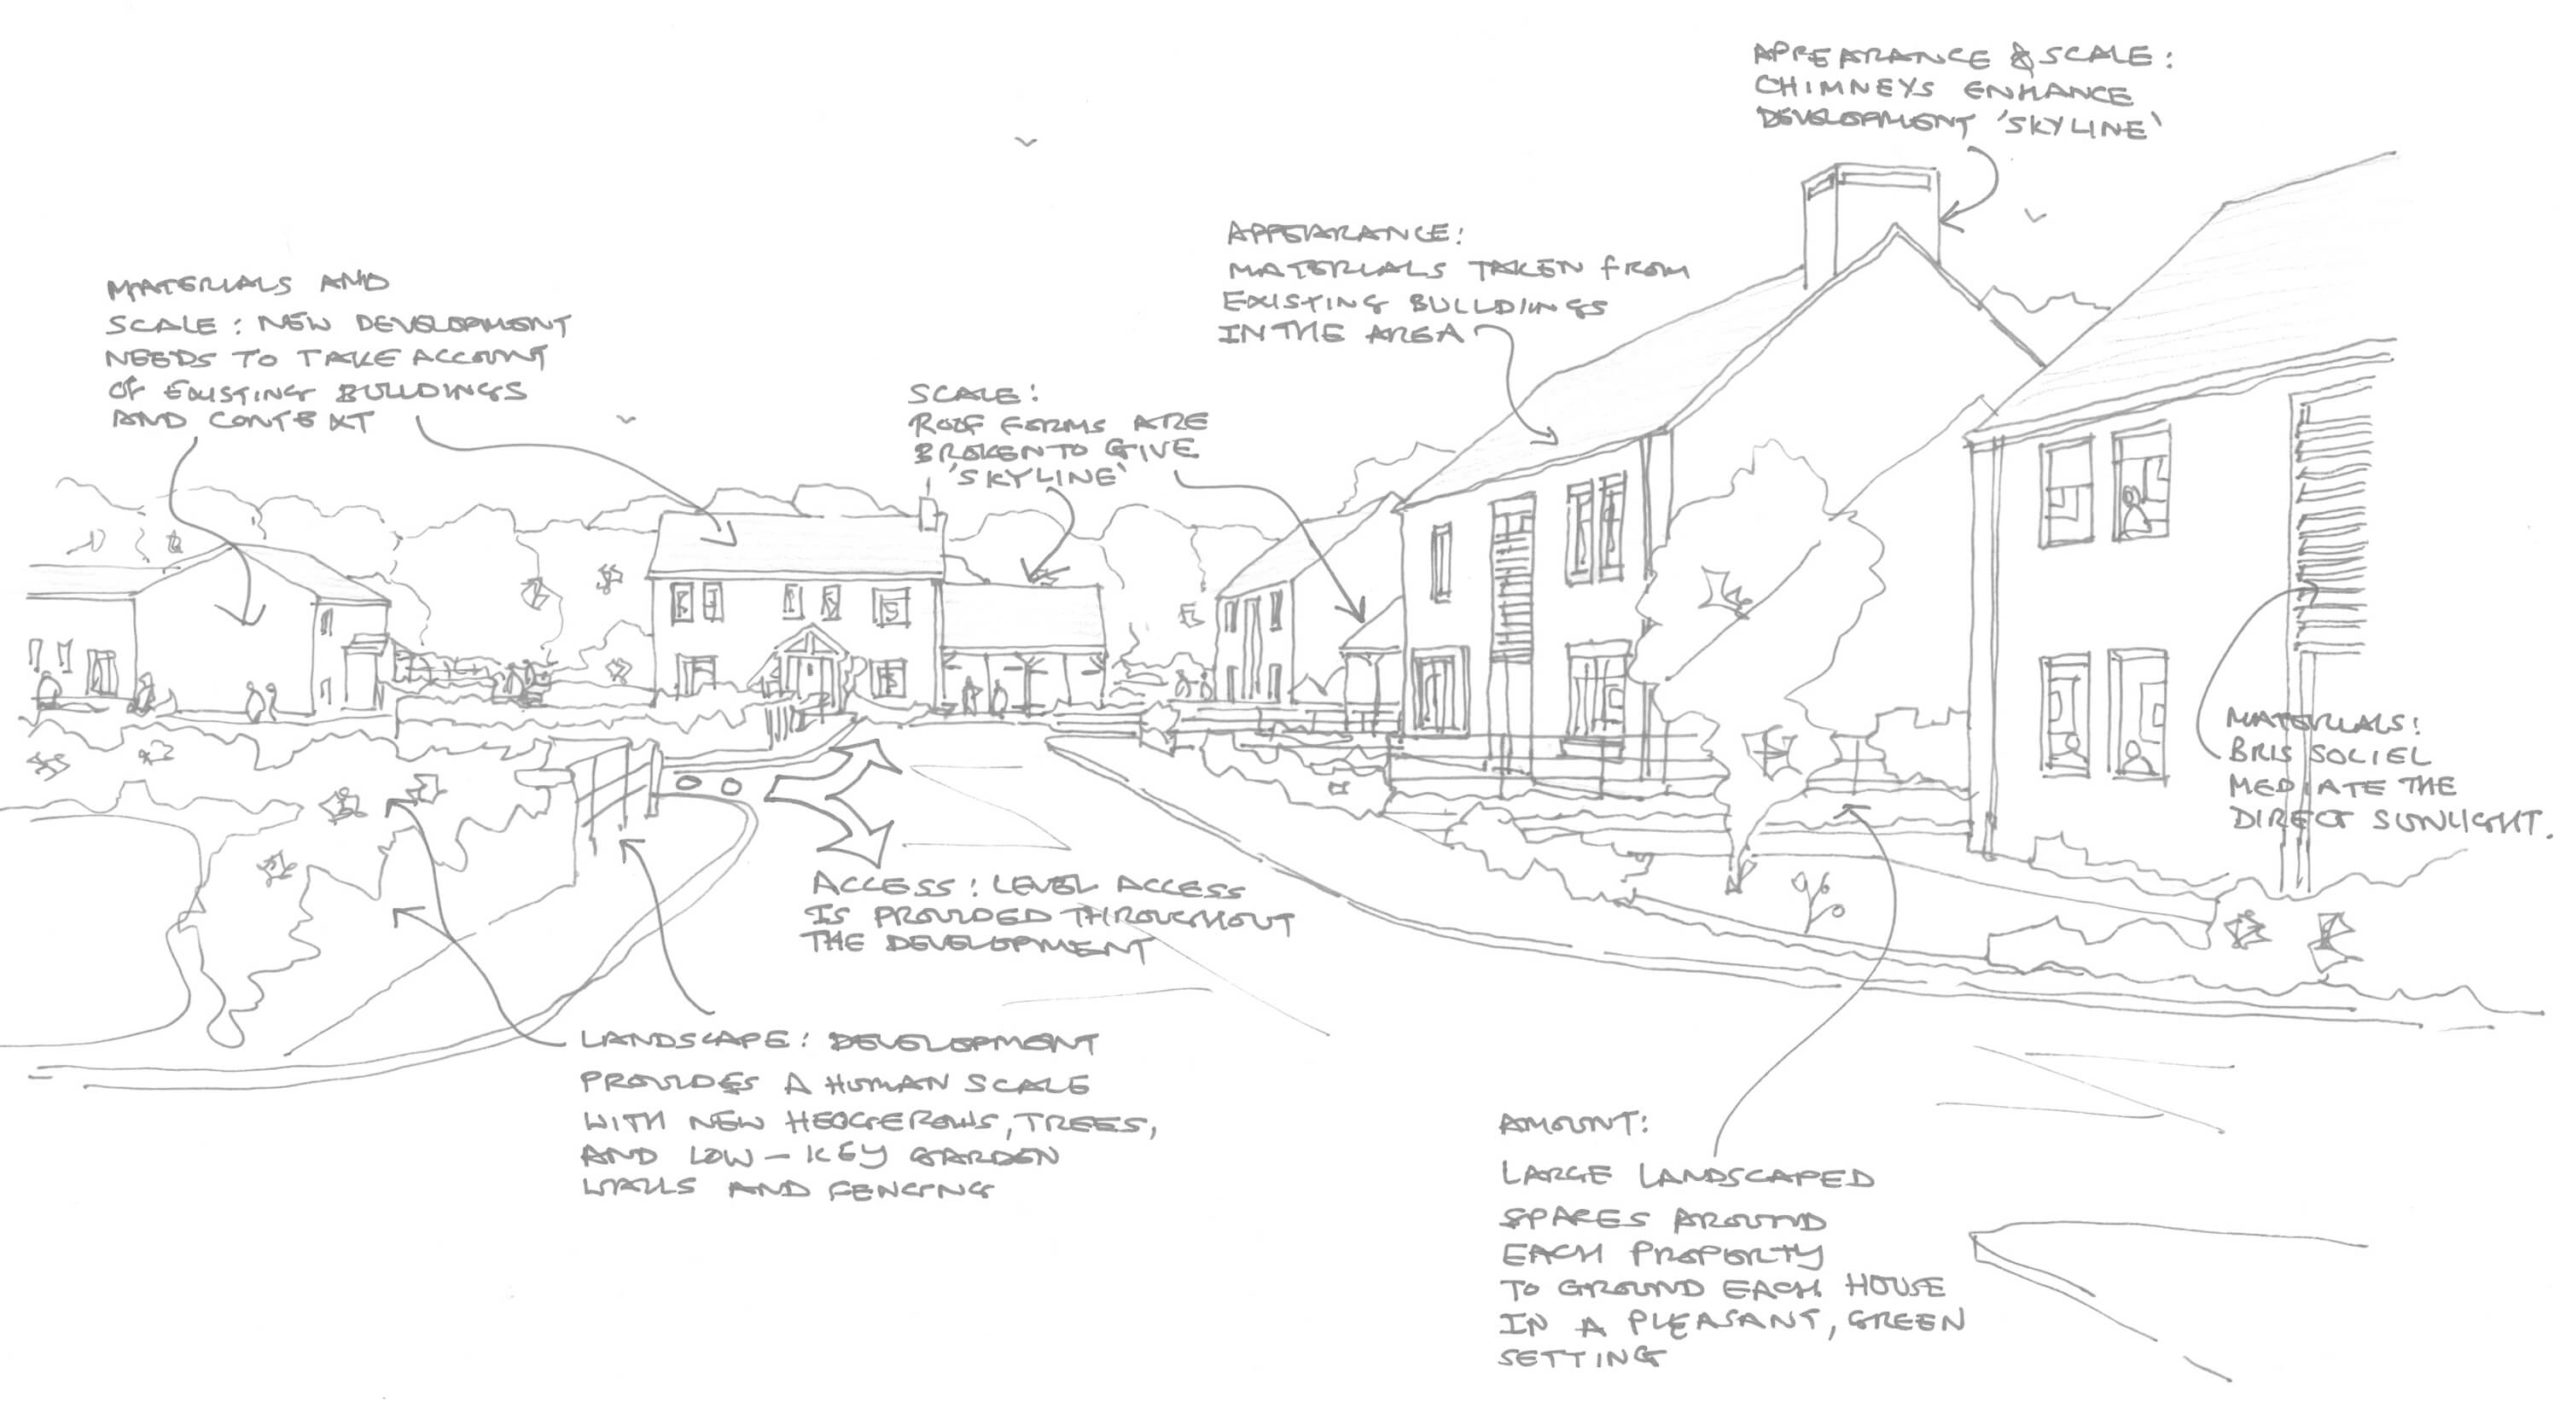 APPEARANCE & SCALE:
CHIMNEYS ENHANCE
DEVELOPMENT 'SKYLINE'
APPEARANCE:
MATERIALS TAKEN FROM
EXISTING BUILDINGS
IN THE AREA
MATERIALS AND
SCALE: NEW DEVELOPMENT
NEEDS TO TAKE ACCOUNT
OF EXISTING BUILDINGS
AND CONTEXT
SCALE:
ROOF FORMS ARE
BROKEN TO GIVE
'SKYLINE'
MATERIALS:
BRIS SOCIEL
MEDIATE THE
DIRECT SUNLIGHT.
ACCESS: LEVEL ACCESS
IS PROVIDED THROUGHOUT
THE DEVELOPMENT
LANDSCAPE: DEVELOPMENT
PROVIDES A HUMAN SCALE
WITH NEW HEDGEROWS, TREES,
AND LOW-KEY GARDEN
WALLS AND FENCING
AMOUNT:
LARGE LANDSCAPED
SPACES AROUND
EACH PROPERTY
TO GROUND EACH HOUSE
IN A PLEASANT, GREEN
SETTING